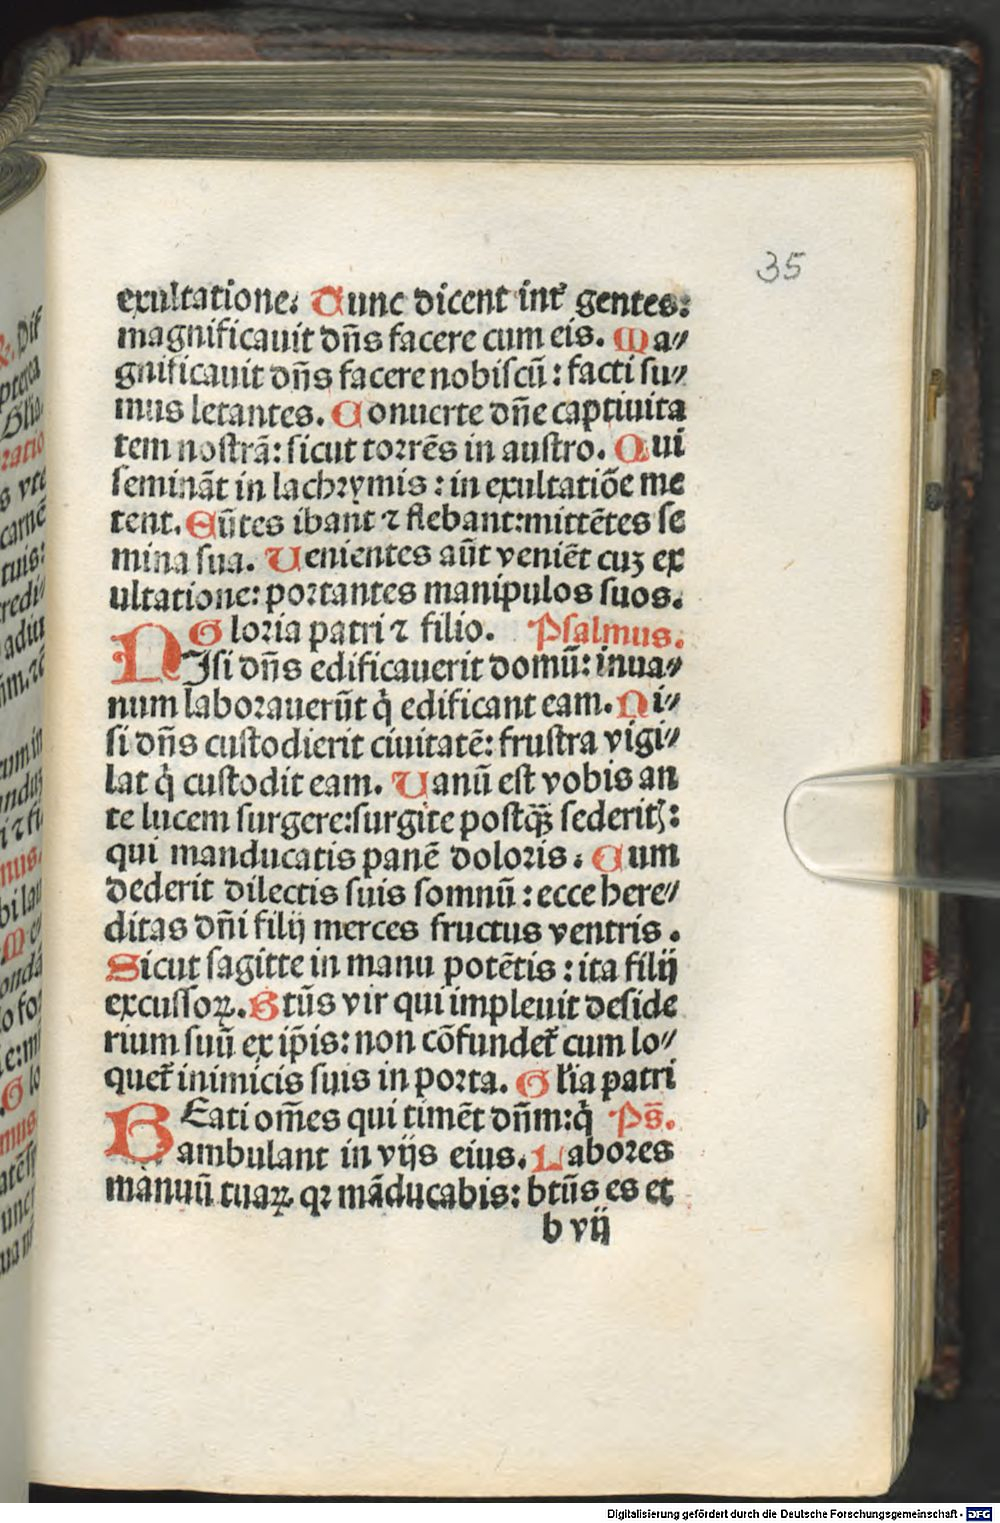 35
exultatione. Tunc dicent int̄ gentes:
magnificauit dn̄s facere cum eis. Ma⸗
gnificauit dn̄s facere nobiscū: facti su⸗
mus letantes. Conuerte dn̄e captiuita
tem nostrā: sicut torrēs in austro. Qui
semināt in lachrymis: in exultatiōe me
tent. Eūtes ibant ⁊ flebant: mittētes se
mina sua. Uenientes aūt veniēt cuꝫ ex
ultatione: portantes manipulos suos.
Gloria patri ⁊ filio. Psalmus.
NIsi dn̄s edificauerit domū: inua⸗
num laborauerūt q̇ edificant eam. Ni⸗
si dn̄s custodierit ciuitatē: frustra vigi⸗
lat q̇ custodit eam. Uanū est vobis an
te lucem surgere: surgite postq̄ꝫ sederitꝭ:
qui manducatis panē doloris. Cum
dederit dilectis suis somnū: ecce here⸗
ditas dn̄i filij merces fructus ventris.
Sicut sagitte in manu potētis: ita filij
excussoꝝ. Btūs vir qui impleuit deside
rium suū ex ip̄is: non cōfundet̄ cum lo⸗
quet̄ inimicis suis in porta. Glīa patri
BEati om̄es qui timēt dn̄m: q̇ Ps̄.
ambulant in vijs eius. Labores
manuū tuaꝝ qꝛ māducabis: btūs es et
b vij
Digitalisierung gefördert durch die Deutsche Forschungsgemeinschaft - DFG